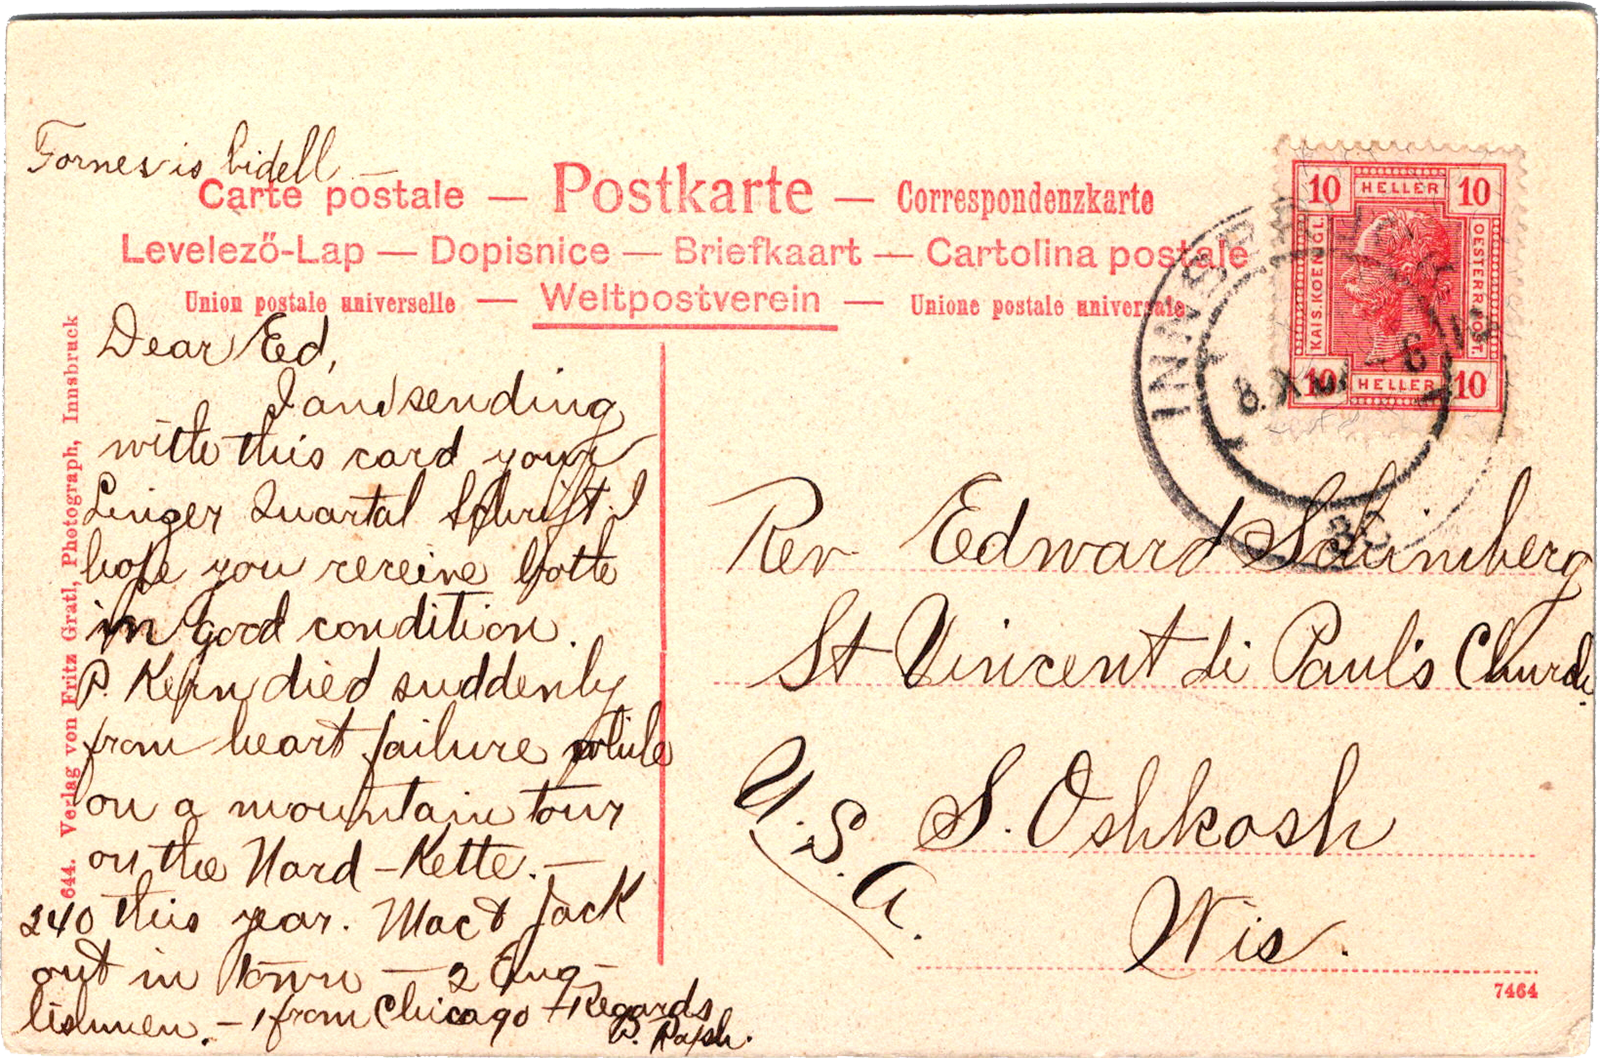 Fornes is bidell —
Carte postale — Postkarte — Correspondenzkarte
Levelező-Lap — Dopisnice — Briefkaart — Cartolina postale
Union postale universelle — Weltpostverein — Unione postale universale
10 HELLER 10
KAIS. KOENIGL.
OESTERR. POST.
10 HELLER 10
INNSBRUCK
8. X 07 - 6
3C
644. Verlag von Fritz Gratl, Photograph, Innsbruck
Dear Ed,
I am sending
with this card your
Linzer Quartal Schrift. I
hope you receive both
in good condition.
P. Kern died suddenly
from heart failure while
on a mountain tour
on the Nord-Kette. —
240 this year. Mac & Jack
out in town — 2 Eng-
lishmen. — 1 from Chicago + Regards
P.
Rev Edward Schimberg
St Vincent di Paul's Church.
S. Oshkosh
U.S.A.
Wis.
7464